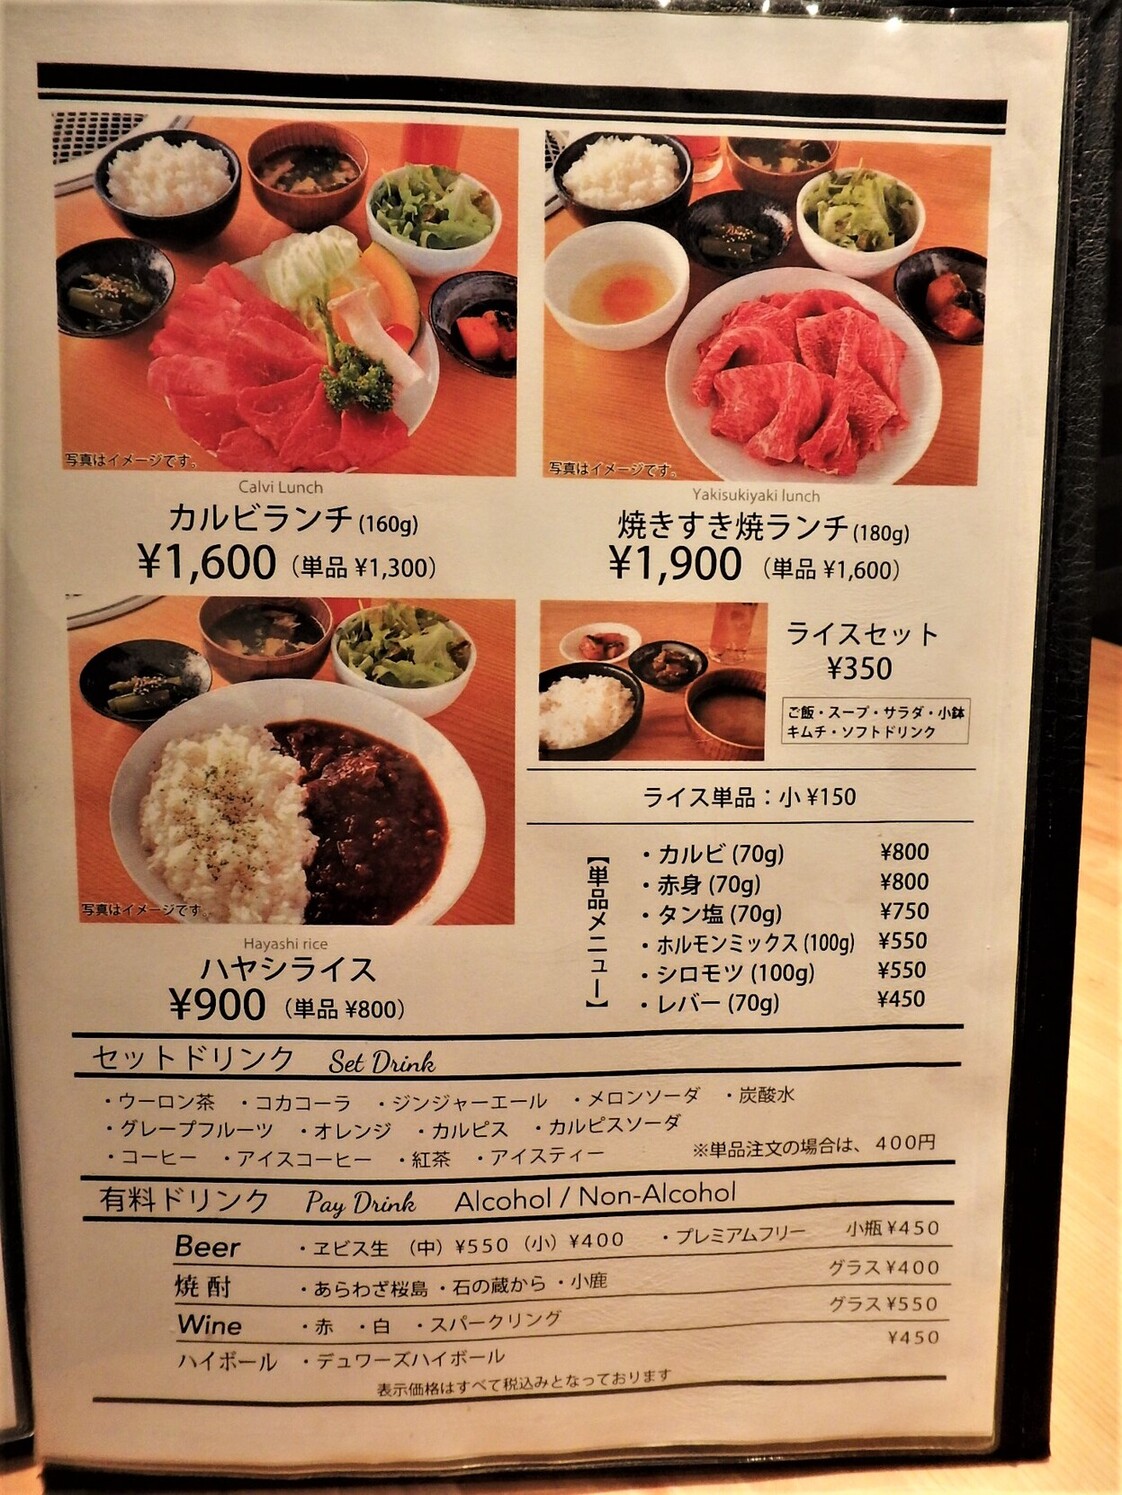 写真はイメージです。
Calvi Lunch
カルビランチ(160g)
¥1,600（単品 ¥1,300）
写真はイメージです。
Yakisukiyaki lunch
焼きすき焼ランチ(180g)
¥1,900（単品 ¥1,600）
写真はイメージです。
Hayashi rice
ハヤシライス
¥900（単品 ¥800）
ライスセット
¥350
ご飯・スープ・サラダ・小鉢
キムチ・ソフトドリンク
ライス単品：小 ¥150
【単品メニュー】
・カルビ (70g) ¥800
・赤身 (70g) ¥800
・タン塩 (70g) ¥750
・ホルモンミックス (100g) ¥550
・シロモツ (100g) ¥550
・レバー (70g) ¥450
セットドリンク Set Drink
・ウーロン茶 ・コカコーラ ・ジンジャーエール ・メロンソーダ ・炭酸水
・グレープフルーツ ・オレンジ ・カルピス ・カルピスソーダ
・コーヒー ・アイスコーヒー ・紅茶 ・アイスティー ※単品注文の場合は、400円
有料ドリンク Pay Drink Alcohol / Non-Alcohol
Beer ・ヱビス生 （中）¥550（小）¥400 ・プレミアムフリー 小瓶 ¥450
焼酎 ・あらわざ桜島 ・石の蔵から ・小鹿 グラス ¥400
Wine ・赤 ・白 ・スパークリング グラス ¥550
ハイボール ・デュワーズハイボール ¥450
表示価格はすべて税込みとなっております